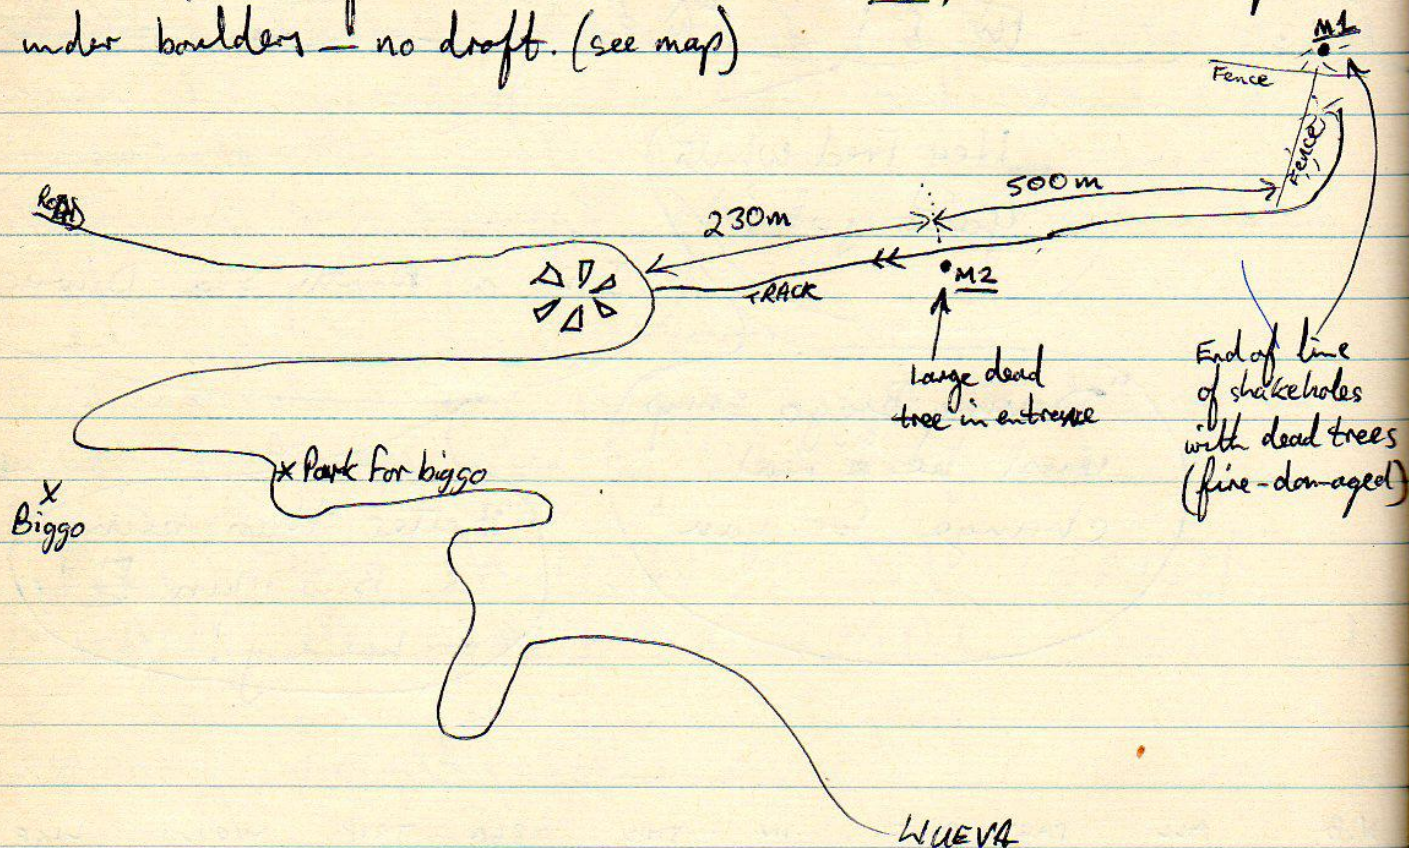 under boulders — no draft. (see map)
M1
Fence
Fence
500m
230m
TRACK
M2
Large dead
tree in entrance
End of line
of shakeholes
with dead trees
(fire-damaged)
x Park for biggo
x
Biggo
WUEVA